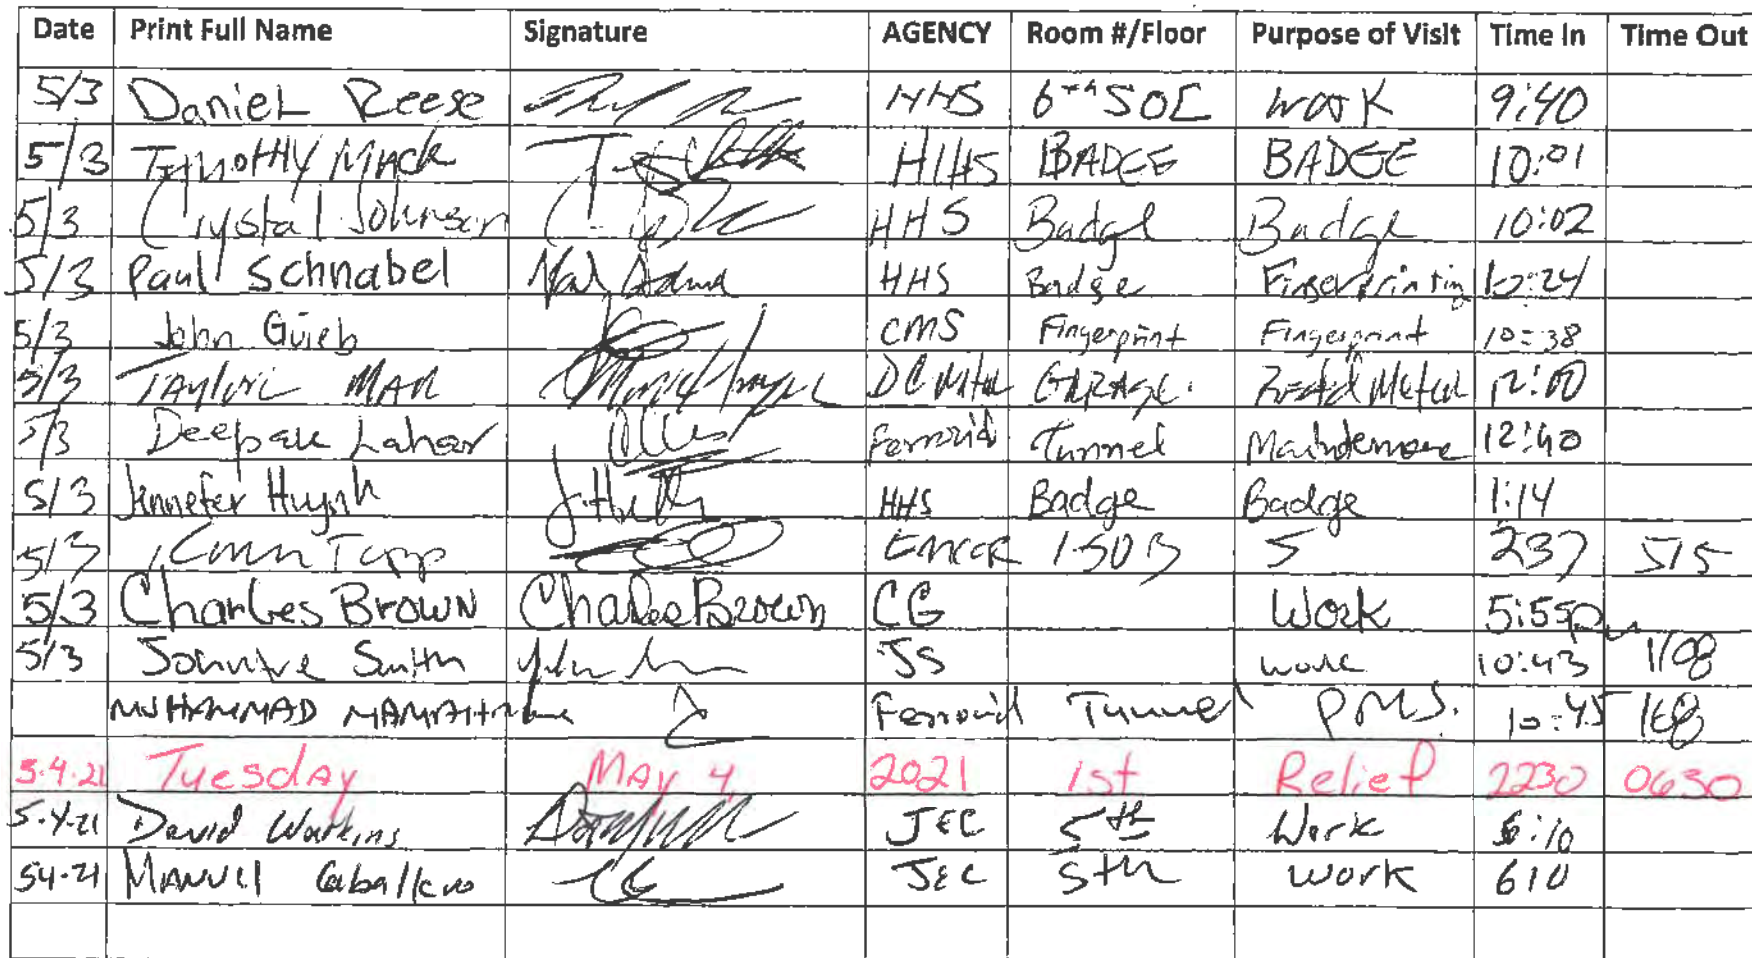 Date Print Full Name Signature AGENCY Room #/Floor Purpose of Visit Time In Time Out
5/3 Daniel Reese HHS 6th SOC work 9:40
5/3 Timothy Mack HHS BADGE BADGE 10:01
5/3 Crystal Johnson HHS Badge Badge 10:02
5/3 Paul Schnabel HHS Badge Fingerprinting 10:24
5/3 John Guieb CMS Fingerprint Fingerprint 10:38
5/3 TAYLOR MAR DC GARAGE Metal 12:00
5/3 Deepak Lahar Ferrovid Tunnel Maintenance 12:40
5/3 Jennefer Huynh HHS Badge Badge 1:14
5/3 Topp EMCOR 150B S 237 515
5/3 Charles Brown Charles Brown CG Work 5:55pm
5/3 Smith JS work 10:43 1108
MUHAMMAD Ferrovid Tunnel P.M.S. 10:45 1108
5.4.21 Tuesday MAY 4 2021 1st Relief 2230 0630
5.4.21 David Watkins JEC 5th Work 6:10
54.21 Manuel Caballero JEC 5th work 610